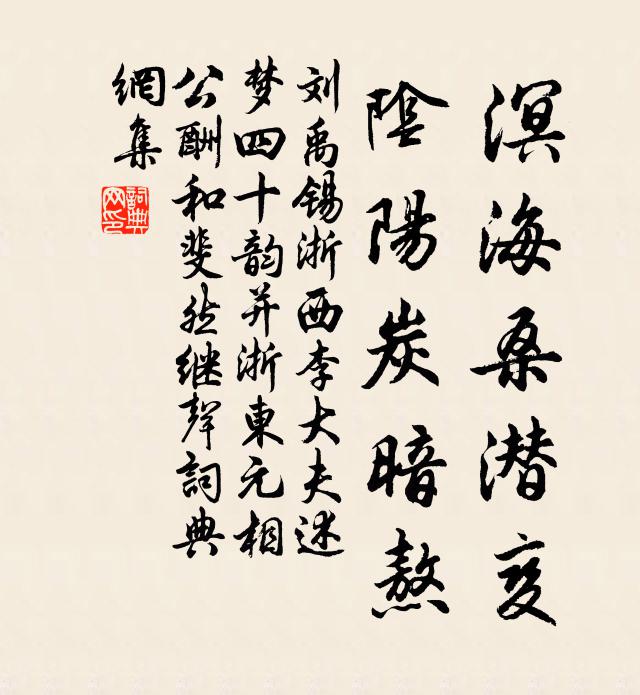 溟海桑潜变
陰陽炭暗熬
刘禹锡浙西李大夫述
梦四十韵并浙東元相
公酬和斐然继聲詞典
網集
詞典
网印